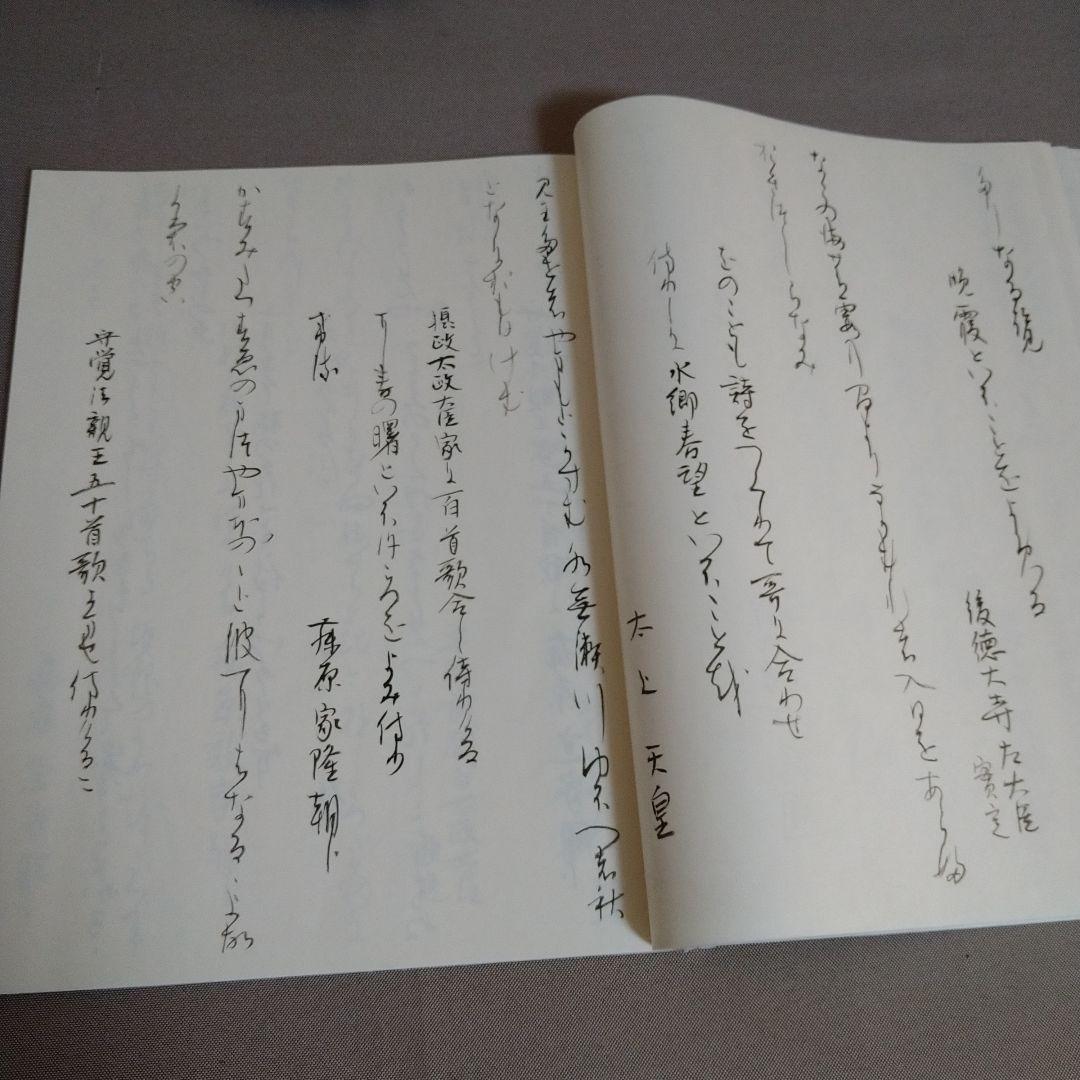 たりなる覧
晩霞といふことをよめる
後徳大寺左大臣
實定
なこの海の霞の間よりながむれば入日をあらふ
おきつしらなみ
をのこども詩をつくりて哥に合わせ
侍りしに水郷春望といふことを
太上天皇
見わたせばやまもとかすむ水無瀬川ゆふべは秋
となにおもひけむ
摂政太政大臣家に百首歌合し侍りける
に春の曙といふ心をよみ侍り
ける
藤原家隆朝臣
かすみたつすゑのまつやまほのぼのと波にはなるるよこ
ぐものそら
守覚法親王五十首歌よませ侍りけるに